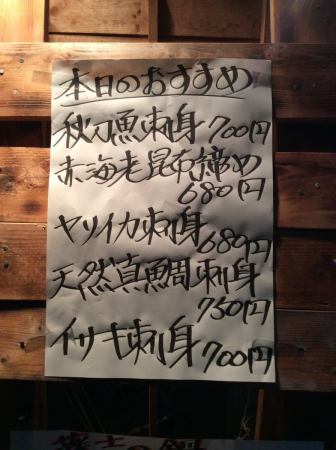 本日のおすすめ
秋刀魚刺身 700円
赤海老昆布締め
680円
ヤリイカ刺身 680円
天然真鯛刺身
750円
イサキ刺身 700円